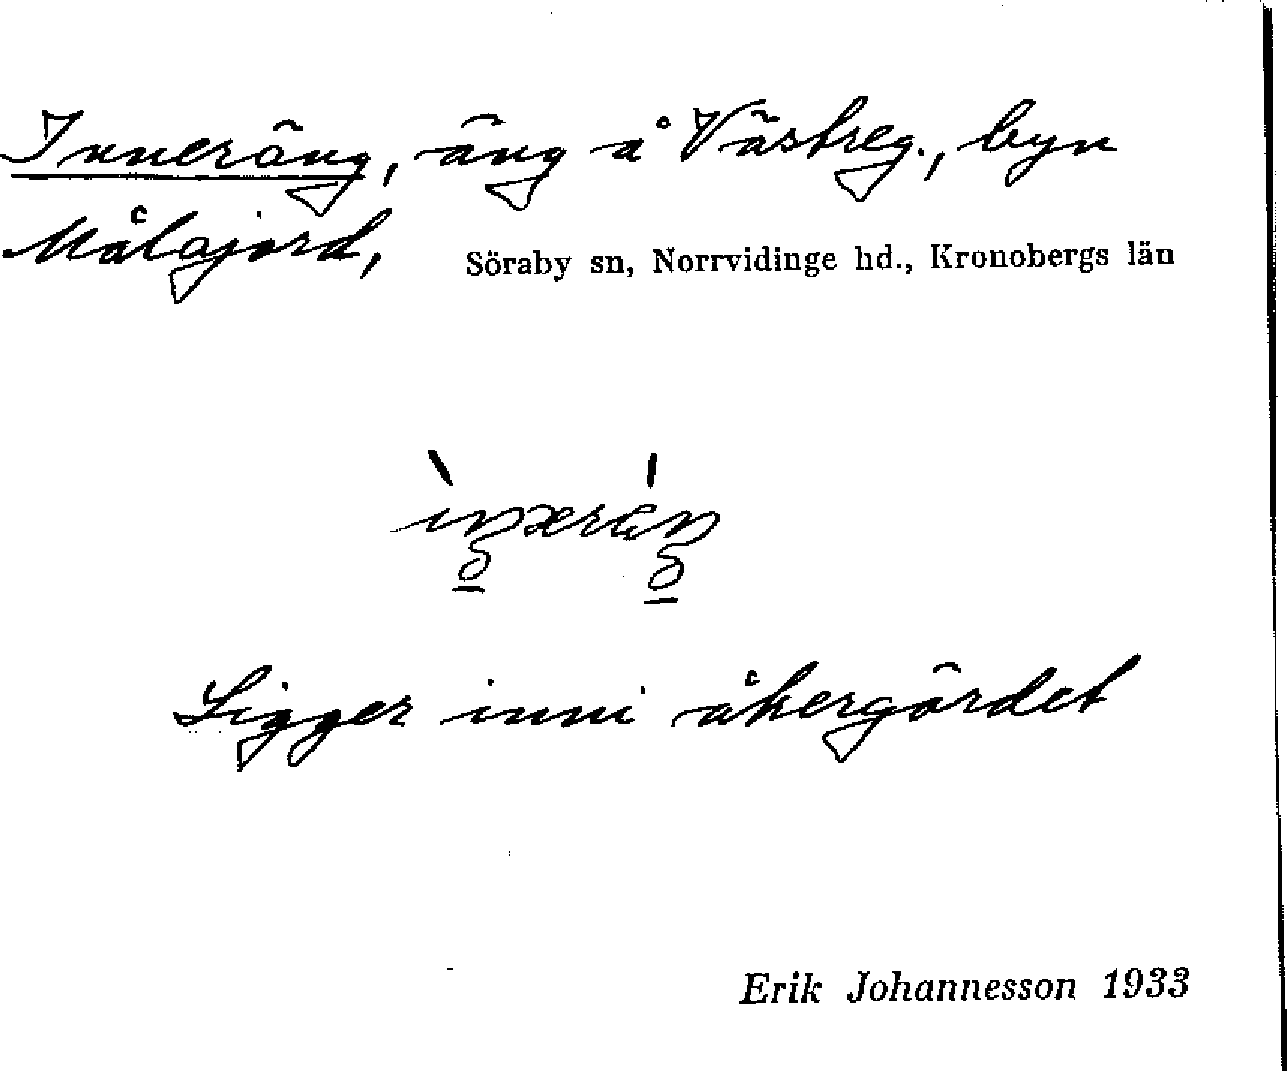 Inneräng, äng å Västreg., byn
Målajord, Söraby sn, Norrvidinge hd., Kronobergs län
Ligger inni åkergärdet
Erik Johannesson 1933